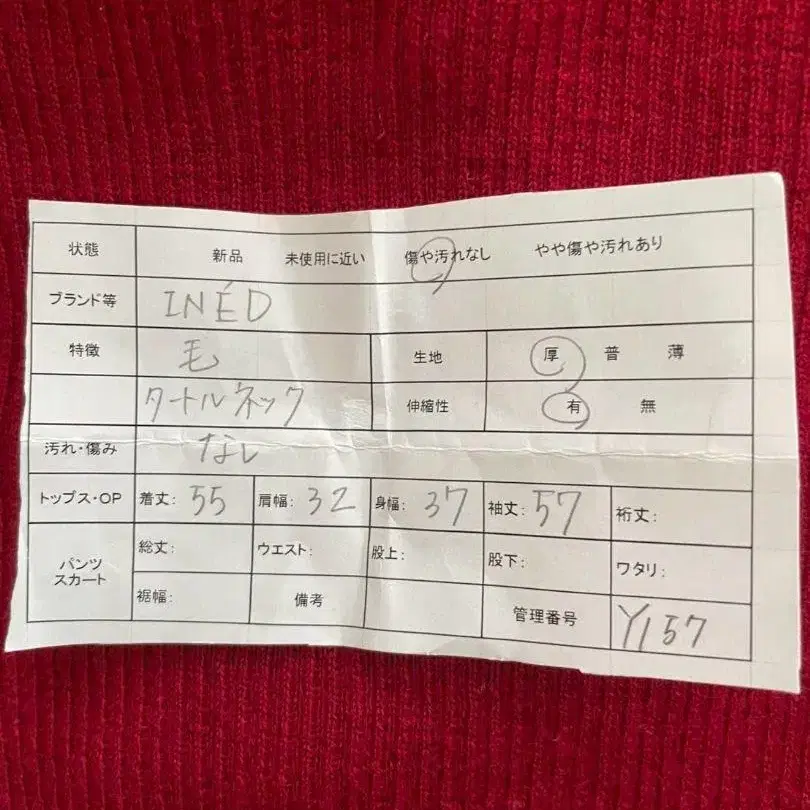 状態 新品 未使用に近い 傷や汚れなし やや傷や汚れあり
ブランド等 INÉD
特徴 毛 生地 厚 普 薄
タートルネック 伸縮性 有 無
汚れ・傷み なし
トップス・OP 着丈: 55 肩幅: 32 身幅: 37 袖丈: 57 裄丈:
パンツ スカート 総丈: ウエスト: 股上: 股下: ワタリ:
裾幅: 備考 管理番号 Y157